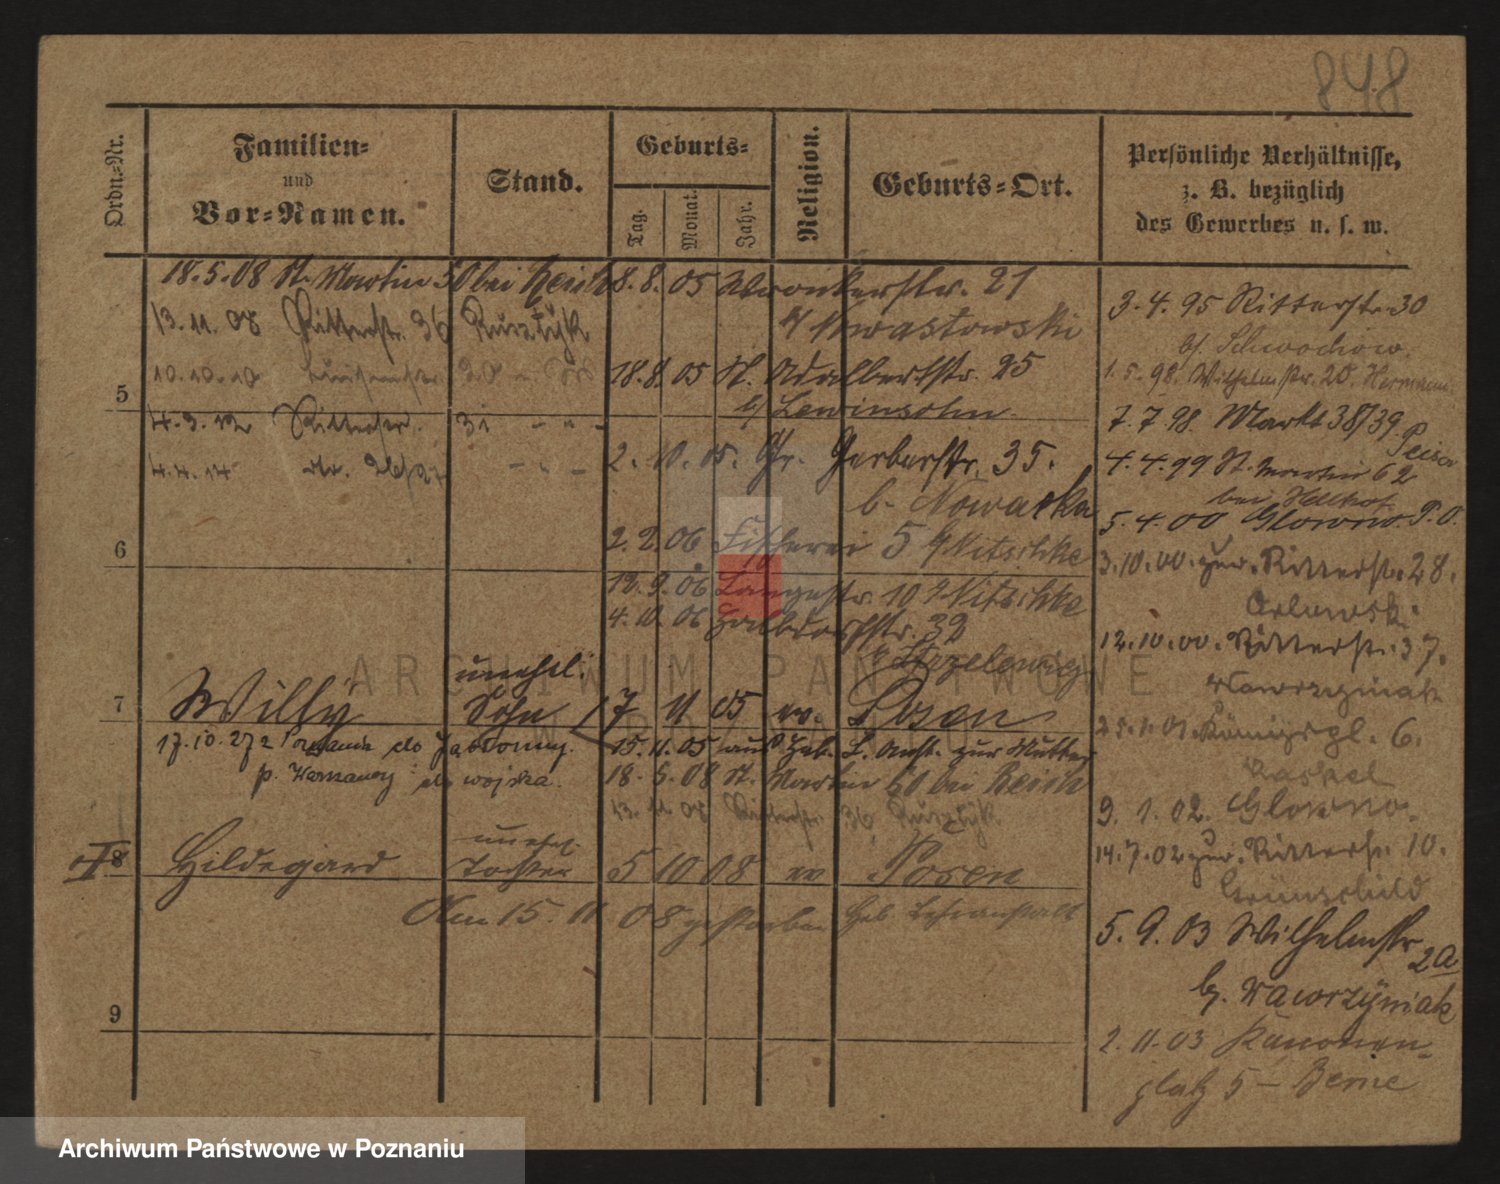 848
Ordn.-Nr.
Familien-
und
Vor-Namen.
Stand.
Geburts-
Tag.
Monat.
Jahr.
Religion.
Geburts-Ort.
Persönliche Verhältnisse,
z. B. bezüglich
des Gewerbes u. s. w.
18.5.08 St. Martin 50 bei Reich
13.11.08 Ritterstr. 36 Ruszțyk
10.10.10
5
4.3.12 Ritterstr. 31 - " -
4.4.14 - " -
6
8.8.05 Wronkerstr. 21
18.8.05 St. Adalbertstr. 25
b/ Lewinsohn
2.10.05. Gr. Gerberstr. 35.
b. Nowacka
2.2.06 Fischerei 5 b/ Nitschke
12.9.06 Langestr. 10 b/ Nitschke
4.10.06 Halbdorfstr. 32
7
Willy
unehl.
Sohn
17 11 05 ev. Posen
17.10.27 z Poznania do Jabłonny.
p. Warszawy do wojska.
15.11.05 aus Heb. L. Anst. zur Mutter
18.5.08 St. Martin 50 bei Reich
13.11.08 Ritterstr. 36
8
Hildegard
unehel.
Tochter
5 10 08 ev Posen
Am 15.11 08 gestorben Heb. Lehranstalt
9
3.4.95 Ritterstr. 30
1.5.98. Wilhelmstr. 20. Hermann
7.7.98 Markt 38/39 Peiser
4.4.99 St. Martin 62
bei
5.4.00 Glowno P.O.
3.10.00. zur. Ritterstr. 28.
Orlowski
12.10.00. Ritterstr. 37.
Wawrzyniak
25.1.01. Königspl. 6.
Kaskel
9.1.02. Glowno.
14.7.02 zur. Ritterstr. 10.
Grünschild
5.9.03 Wilhelmstr
2a
b/. Wawrzyniak
2.11.03 Kanonen-
platz 5 -
ARCHIWUM PAŃSTWOWE
W POZNANIU
Archiwum Państwowe w Poznaniu